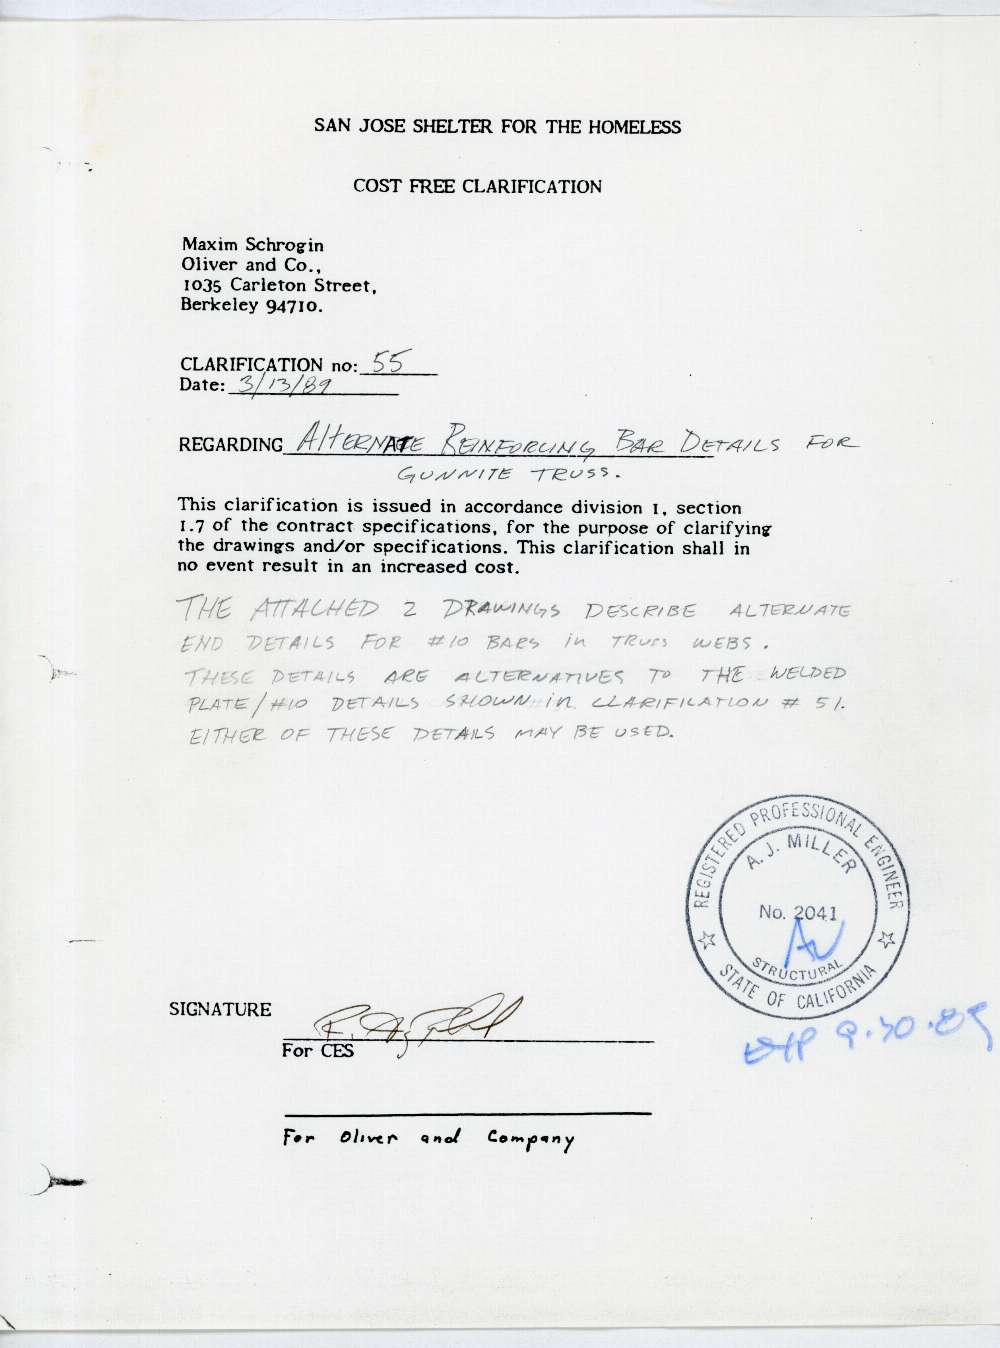 SAN JOSE SHELTER FOR THE HOMELESS
COST FREE CLARIFICATION
Maxim Schrogin
Oliver and Co.,
1035 Carleton Street,
Berkeley 94710.
CLARIFICATION no: 55
Date: 3/13/89
REGARDING ALTERNATE REINFORCING BAR DETAILS FOR
GUNNITE TRUSS.
This clarification is issued in accordance division 1, section
1.7 of the contract specifications, for the purpose of clarifying
the drawings and/or specifications. This clarification shall in
no event result in an increased cost.
THE ATTACHED 2 DRAWINGS DESCRIBE ALTERNATE
END DETAILS FOR #10 BARS in TRUSS WEBS.
THESE DETAILS ARE ALTERNATIVES TO THE WELDED
PLATE/#10 DETAILS SHOWN in CLARIFICATION # 51.
EITHER OF THESE DETAILS MAY BE USED.
REGISTERED PROFESSIONAL ENGINEER
A. J. MILLER
No. 2041
STRUCTURAL
STATE OF CALIFORNIA
EXP 9.30.89
SIGNATURE
For CES
For Oliver and Company